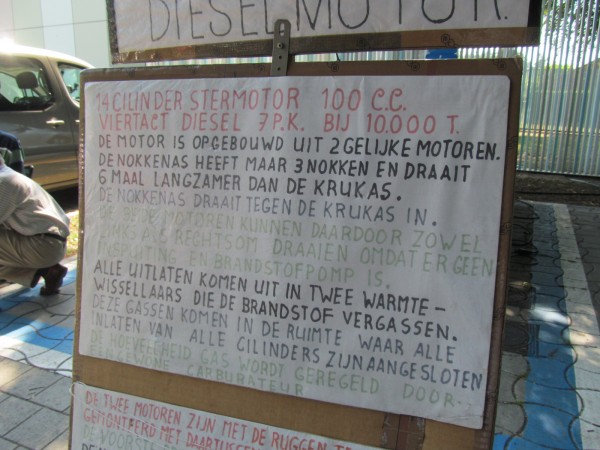 DIESELMOTOR.
14 CILINDER STERMOTOR 100 C.C.
VIERTACT DIESEL 7 P.K. BIJ 10.000 T.
DE MOTOR IS OPGEBOUWD UIT 2 GELIJKE MOTOREN.
DE NOKKENAS HEEFT MAAR 3 NOKKEN EN DRAAIT
6 MAAL LANGZAMER DAN DE KRUKAS.
DE NOKKENAS DRAAIT TEGEN DE KRUKAS IN.
DE MOTOREN KUNNEN DAARDOOR ZOWEL
RECHTSOM DRAAIEN OMDAT ER GEEN
EN BRANDSTOFPOMP IS.
ALLE UITLATEN KOMEN UIT IN TWEE WARMTE-
WISSELLAARS DIE DE BRANDSTOF VERGASSEN.
DEZE GASSEN KOMEN IN DE RUIMTE WAAR ALLE
INLATEN VAN ALLE CILINDERS ZIJN AANGESLOTEN
DE HOEVEELHEID GAS WORDT GEREGELD DOOR-
CARBURATEUR
DE TWEE MOTOREN ZIJN MET DE RUGGEN
GEMONTEERD MET DAARTUSSEN